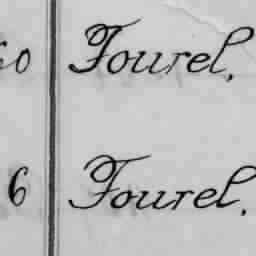 0 Fourel.
6 Fourel.